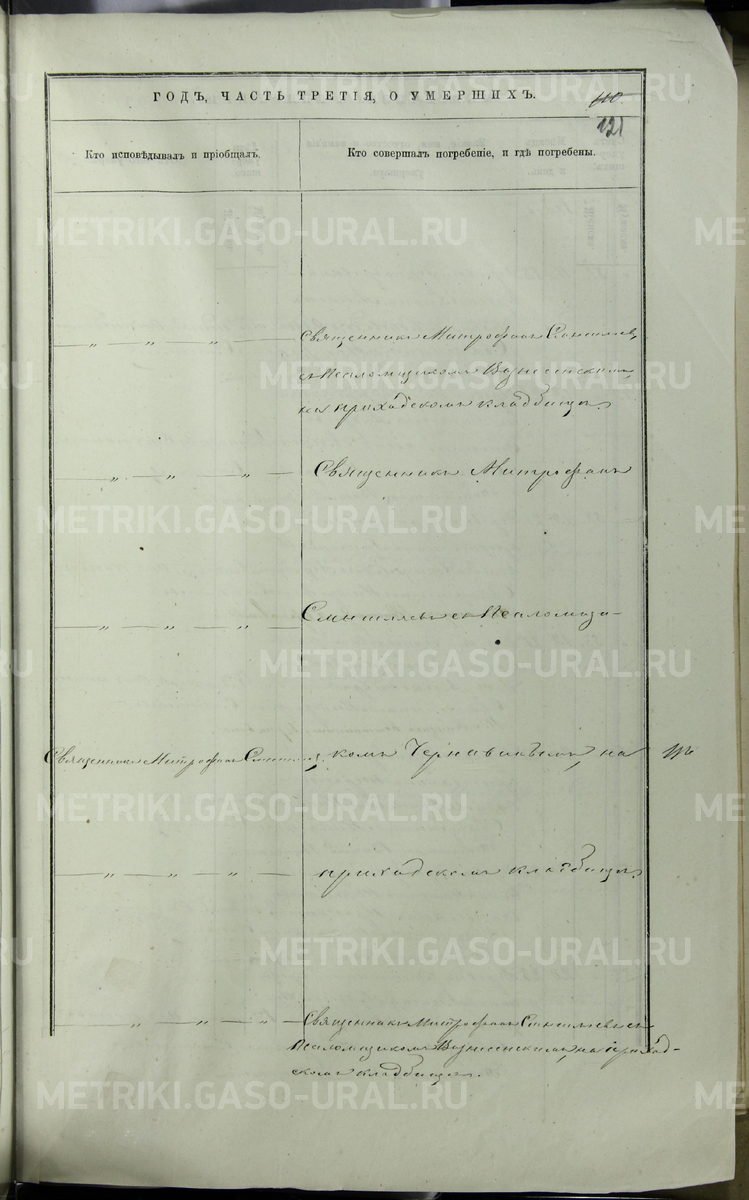 ГОДЪ, ЧАСТЬ ТРЕТІЯ, О УМЕРШИХЪ.
110
121
Кто исповѣдывалъ и пріобщалъ.
Кто совершалъ погребеніе, и гдѣ погребены.
— „ — „ — „ — Священникъ Митрофанъ
съ Псаломщикомъ Вознесенскимъ,
на приходскомъ кладбищѣ.
— „ — „ — „ — Священникъ Митрофанъ
— „ — „ — „ — съ Псаломщи-
Священникъ Митрофанъ
комъ на
— „ — „ — „ — приходскомъ кладбищѣ.
— „ — „ — „ — Священникъ Митрофанъ съ
Псаломщикомъ Вознесенскимъ, на приход-
скомъ кладбищѣ.
METRIKI.GASO-URAL.RU